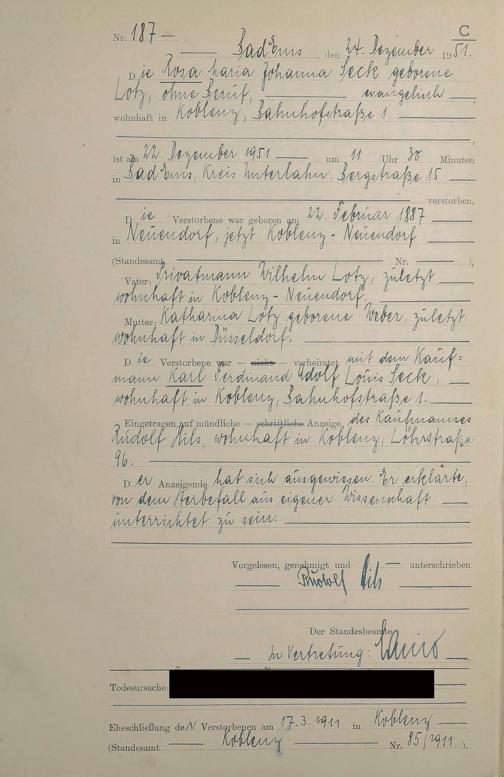 C
Nr. 187
Bad Ems, den 24. Dezember 1951.
Die Rosa Maria Johanna Seck geborene
Lotz, ohne Beruf, evangelisch,
wohnhaft in Koblenz, Bahnhofstraße 1
ist am 22. Dezember 1951 um 11 Uhr 30 Minuten
in Bad Ems, Kreis Unterlahn, Bergstraße 15
verstorben.
Die Verstorbene war geboren am 22. Februar 1887
in Neuendorf, jetzt Koblenz-Neuendorf
(Standesamt Nr. ),
Vater: Privatmann Wilhelm Lotz, zuletzt
wohnhaft in Koblenz-Neuendorf.
Mutter: Katharina Lotz geborene Weber, zuletzt
wohnhaft in Düsseldorf.
Die Verstorbene war — nicht — verheiratet mit dem Kauf-
mann Karl Ferdinand Adolf Louis Seck,
wohnhaft in Koblenz, Bahnhofstraße 1.
Eingetragen auf mündliche — schriftliche Anzeige des Kaufmannes
Rudolf Hils, wohnhaft in Koblenz, Löhrstraße
96.
Der Anzeigende hat sich ausgewiesen. Er erklärte,
von dem Sterbefall aus eigener Wissenschaft
unterrichtet zu sein.
Vorgelesen, genehmigt und unterschrieben
Rudolf Hils
Der Standesbeamte
In Vertretung:
Todesursache:
Eheschließung der Verstorbenen am 17.3.1911 in Koblenz
(Standesamt Koblenz Nr. 85/1911.)